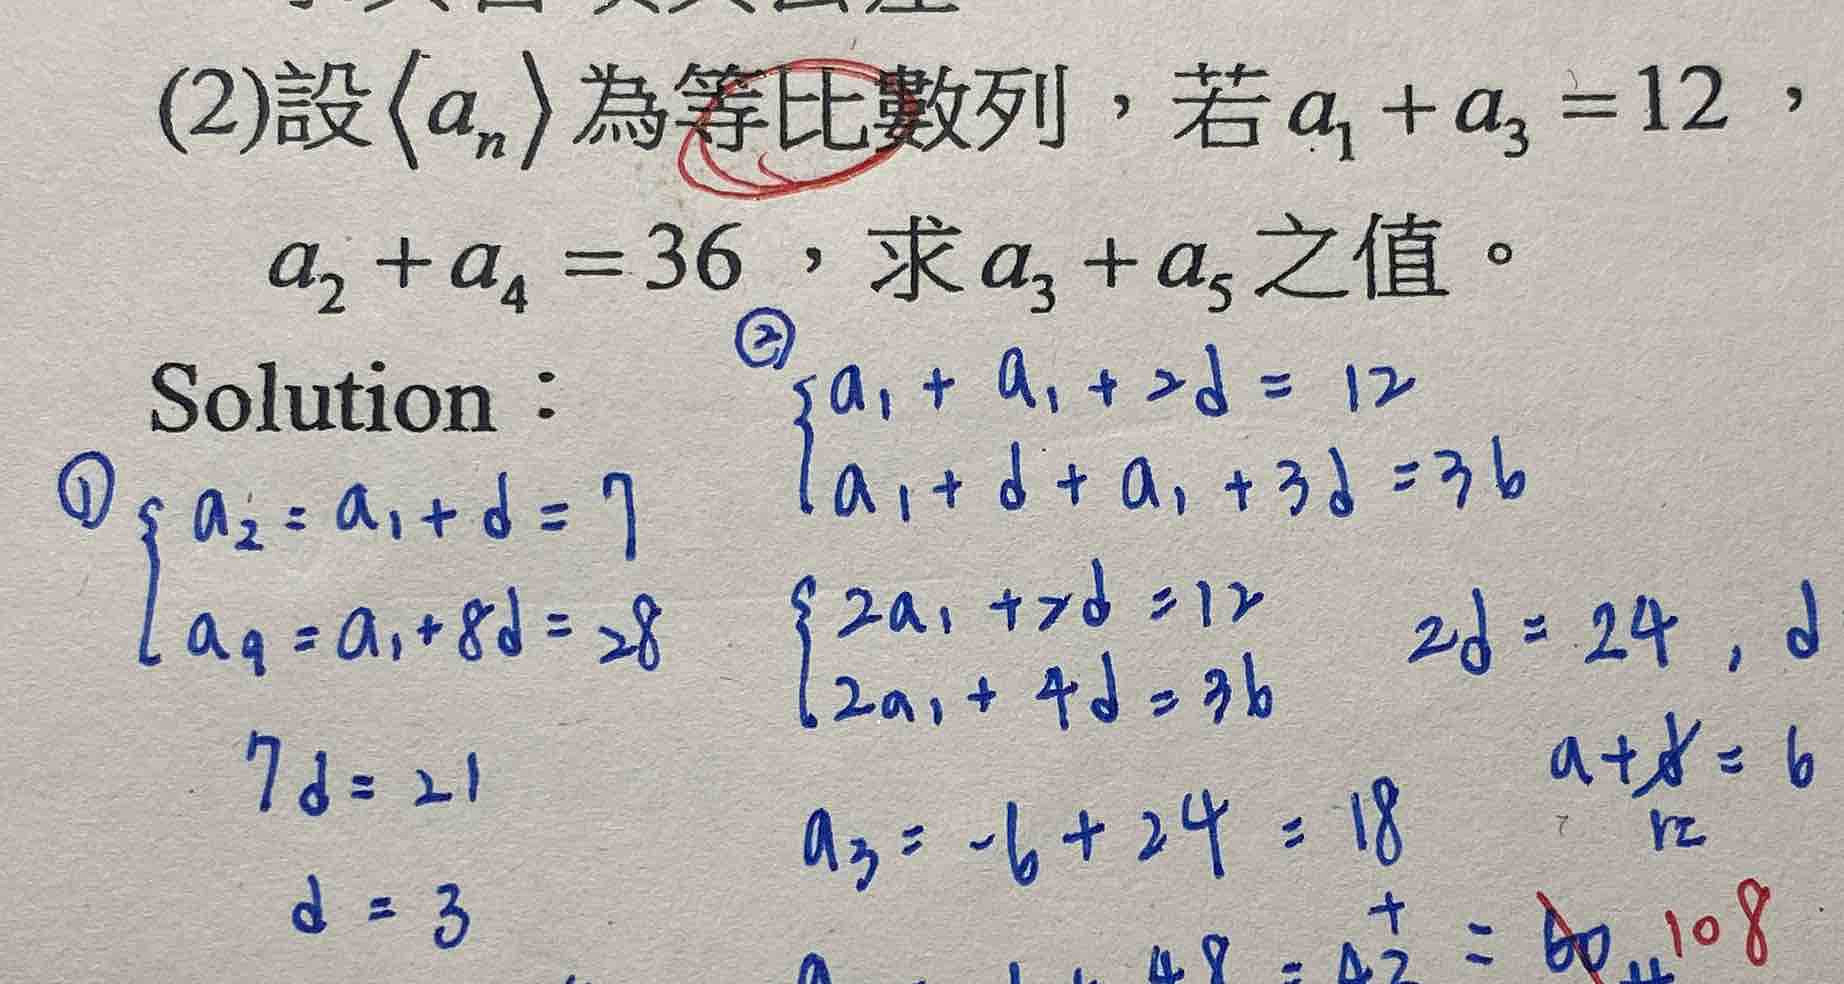 (2)設⟨aₙ⟩為等比數列，若a₁+a₃=12，
a₂+a₄=36，求a₃+a₅之值。
Solution：
①
a₂=a₁+d=7
a₉=a₁+8d=28
7d=21
d=3
②
a₁+a₁+2d=12
a₁+d+a₁+3d=36
2a₁+2d=12
2a₁+4d=36
2d=24, d
a+d=6
12
a₃=-6+24=18
+
48=42=60 108